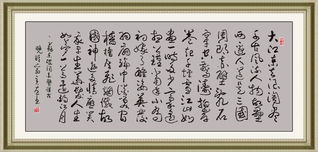 大江東去浪淘盡
千古風流人物故壘
西邊人道是三國
周郎赤壁亂石
穿空驚濤拍岸
卷起千堆雪江山如
畫一時多少豪傑遙
想公瑾當年小喬
初嫁了雄姿英發
羽扇綸巾談笑間
檣櫓灰飛煙滅故
國神遊多情應笑
我早生華髮人生
如夢一尊還酹江月